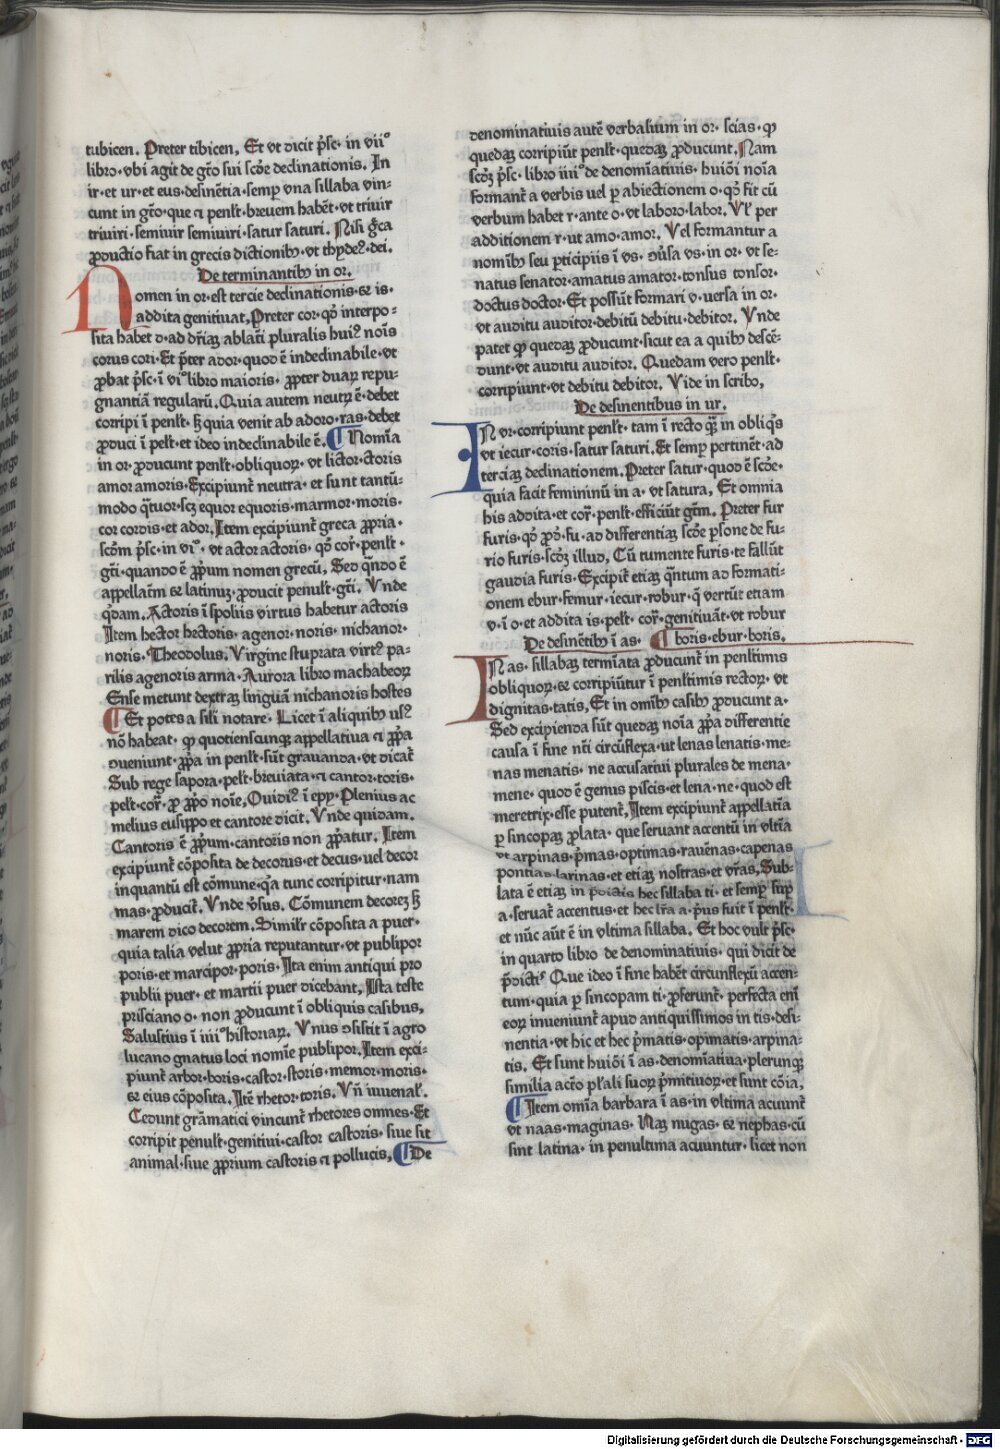 tubicen. Preter tibicen. Et vt dicit p̃sc· in vii°
libro·vbi agit de gr̃o sui sc̃de declinationis. In
ir·et ur·et eus·desinẽtia·semp̱ vna sillaba vin-
cunt in gt̃o·que ⁊ penl̃t·breuem habẽt·vt triuir
triuiri·semiuir semiuiri·satur saturi. Nisi gͨca
ꝓductio fiat in grecis dictionibꝫ·vt thydeꝰ·dei.
De terminantibꝫ in or.
Nomen in or·est tercie declinationis·⁊ is·
addita genitiuat, Preter cor·qd̓ interpo-
sita habet d·ad dr̃iaꝫ ablati pluralis huiꝰ nois
corus cori·Et p̃ter ador·quod ẽ indeclinabile·vt
ꝓbat p̃sc·ĩ vi°libro maioris· ꝓpter duaꝝ repu-
gnantiã regularũ. Quia autem neutꝝ ẽ·debet
corripi ĩ penl̃t· sꝫ quia venit ab adoro·ras·debet
ꝓduci ĩ pel̃t·et ideo indeclinabile ẽ. ¶ Nomĩa
in or·ꝓducunt penl̃t·obliquoꝝ·vt lictor·ctoris
amor amoris·Excipiunt̃ neutra·et sunt tantũ-
modo q̃tuor·scꝫ equor equoris·marmor·moris·
cor cordis·et ador. Item excipiunt̃ greca ꝓpria·
scd̃m p̃sc·in vi°· vt actor actoris· qd̓ cor̃·penl̃t·
gt̃i·quando ẽ ꝓpũm nomen grecũ, Sed qñdo ẽ
appellatm̃ ⁊ latinuꝫ·ꝓducit penul̃t·gt̃i. Vnde
q̃dam. Actoris ĩ spoliis virtus habetur actoris
Item hector hectoris·agenor·noris·nichanor·
noris. Theodolus, Virgine stuprata virtꝰ pa-
rilis agenoris arma·Aurora libro machabeoꝝ
Ense metunt dextraꝫ linguã nichanoris hostes
¶ Et potes a sili notare· Licet ĩ aliquibꝫ usꝰ
nõ habeat· ꝙ quotienscunqꝫ appellatiua ⁊ ꝓpã
ꝯueniunt·ꝓpã in penl̃t·sũt grauanda·vt dicat̃
Sub rege sapora·pel̃t·breuiata·⁊ cantor·toris·
pel̃t·cor̃·ꝓ ꝓpõ noĩe, Ouidiꝰ ĩ epy·Plenius ac
melius eusippo et cantore dicit. Vnde quidam.
Cantoris ẽ ꝓpũm·cantoris non ꝓpatur. Item
excipiunt̃ cõposita de decorus·et decus·uel decor
inquantũ est cõmune·q̃a tunc corripitur·nam
mas·ꝓducit̃. Vnde v̓sus. Cõmunem decoreꝫ sꝫ
marem dico decorem. Similr̃ cõposita a puer·
quia talia velut ꝓpria reputantur·vt publipor
poris·et marcipor·poris· Ita enim antiqui pro
publii puer· et martii puer dicebant, Ista teste
prisciano o· non ꝓducunt ĩ obliquis casibus,
Salustius ĩ iiii°historiaꝝ. Vnus ꝯsistit ĩ agro
lucano gnatus loci nomĩe publipor. Item exci-
piunt̃ arbor·boris·castor·storis·memor·moris·
⁊ eius cõposita. Itẽ rhetor·toris. Vñ iuuenal̃.
Cedunt grãmatici vincunt̃ rhetores omnes·Et
corripit penul̃t·genitiui·castor castoris· siue sit
animal·siue ꝓprium castoris ⁊ pollucis, ¶ De
denominatiuis autẽ verbalium in or· scias·ꝙ
quedaꝫ corripiũt penl̃t·quedaꝫ ꝓducunt. Nam
scd̓ꝫ p̃sc· libro iiii°de denomĩatiuis· huiõi noĩa
formant̃ a verbis uel p̱ abiectionem o·qd̓ fit cũ
verbum habet r·ante o·vt laboro·labor. Vl̓ per
additionem r·ut amo·amor. Vel formantur a
nomibꝫ seu p̱ticipiis ĩ vs· ꝯũsa vs·in or· vt se-
natus senator·amatus amator·tonsus tonsor·
doctus doctor·Et possũt formari v·versa in or·
vt auditu auditor·debitũ debitu·debitor. Vnde
patet ꝙ quedaꝫ ꝓducunt·sicut ea a quibꝫ descẽ-
dunt·vt auditu auditor. Quedam vero penl̃t·
corripiunt·vt debitu debitor. Vide in scribo,
De desinentibus in ur.
IN vr·corripiunt penl̃t· tam ĩ recto q̃ꝫ in obliq̃s
vt iecur·coris·satur saturi. Et semp̱ pertinẽt·ad
terciaꝫ declinationem. Preter satur·quod ẽ scd̓e·
quia facit femininũ in a· vt satura, Et omnia
his addita·et cor̃·penl̃t·efficiũt gt̃m. Preter fur
furis·qd̓ ꝓd̓·fu·ad differentiaꝫ scd̓e p̱sone de fu-
rio furis·scd̓ꝫ illud, Cũ tumente furis·te fallũt
gaudia furis·Excipit̃ etiaꝫ q̃ntum ad formati-
onem ebur·femur·iecur·robur·q̃ vertũt etiam
v·ĩ o·et addita is·pel̃t· cor̃·genitiuãt·vt robur
De desinẽtibꝫ ĩ as. ¶ boris·ebur·boris.
IN as·sillabaꝫ termĩata ꝓducunt̃ in penl̃timis
obliquoꝝ·⁊ corripiũtur ĩ penl̃timis rectoꝝ· vt
dignitas·tatis, Et in omĩbꝫ casibꝫ ꝓducunt a·
Sed excipienda sũt quedaꝫ noĩa ꝓpã differentie
causa ĩ fine nr̃i circũflexa·ut lenas lenatis·me-
nas menatis· ne accusatiui plurales de mena·
mene·quod ẽ genus piscis·et lena·ne·quod est
meretrix·esse putent̃, Item excipiunt̃ appellatĩa
p̱ sincopaꝫ ꝓlata· que seruant accentũ in vltĩa
vt arpinas·p̃mas·optimas·rauẽnas·capenas
pontias·larinas·et etiaꝫ nostras·et vr̃as, Sub-
lata ẽ etiaꝫ in p̃dictis hec sillaba ti·et semp̱ sup̱
a·seruat̃ accentus·et hec lr̃a a·p̃us fuit ĩ penl̃t·
et nũc aũt ẽ in vltima sillaba. Et hoc vult p̃sc·
in quarto libro de denominatiuis· qui dicit de
p̃dictꝭ Que ideo ĩ fine habẽt circunflexũ accen-
tum·quia p̱ sincopam ti·ꝓferunt̃· perfecta eni
eoꝝ inueniunt̃ apud antiquissimos in tis·desi-
nentia·vt hic et hec p̃matis·opimatis·arpina-
tis. Et sunt huiõi ĩ as·denomĩatiua·plerunqꝫ
similia acc̃o pl̃ali suoꝝ p̃mitiuoꝝ·et sunt cõia,
¶ Item omĩa barbara ĩ as·in vltima acuunt̃
vt naas·maginas· Naꝫ nugas·⁊ nephas·cũ
sint latina· in penultima acuuntur·licet non
Digitalisierung gefördert durch die Deutsche Forschungsgemeinschaft - DFG